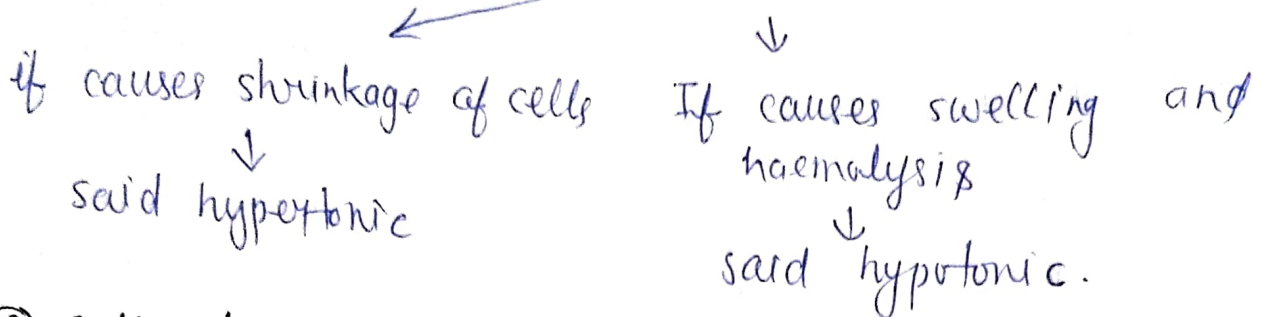 if causes shrinkage of cells
↓
said hypertonic
↓
If causes swelling and
haemolysis
↓
said hypotonic.